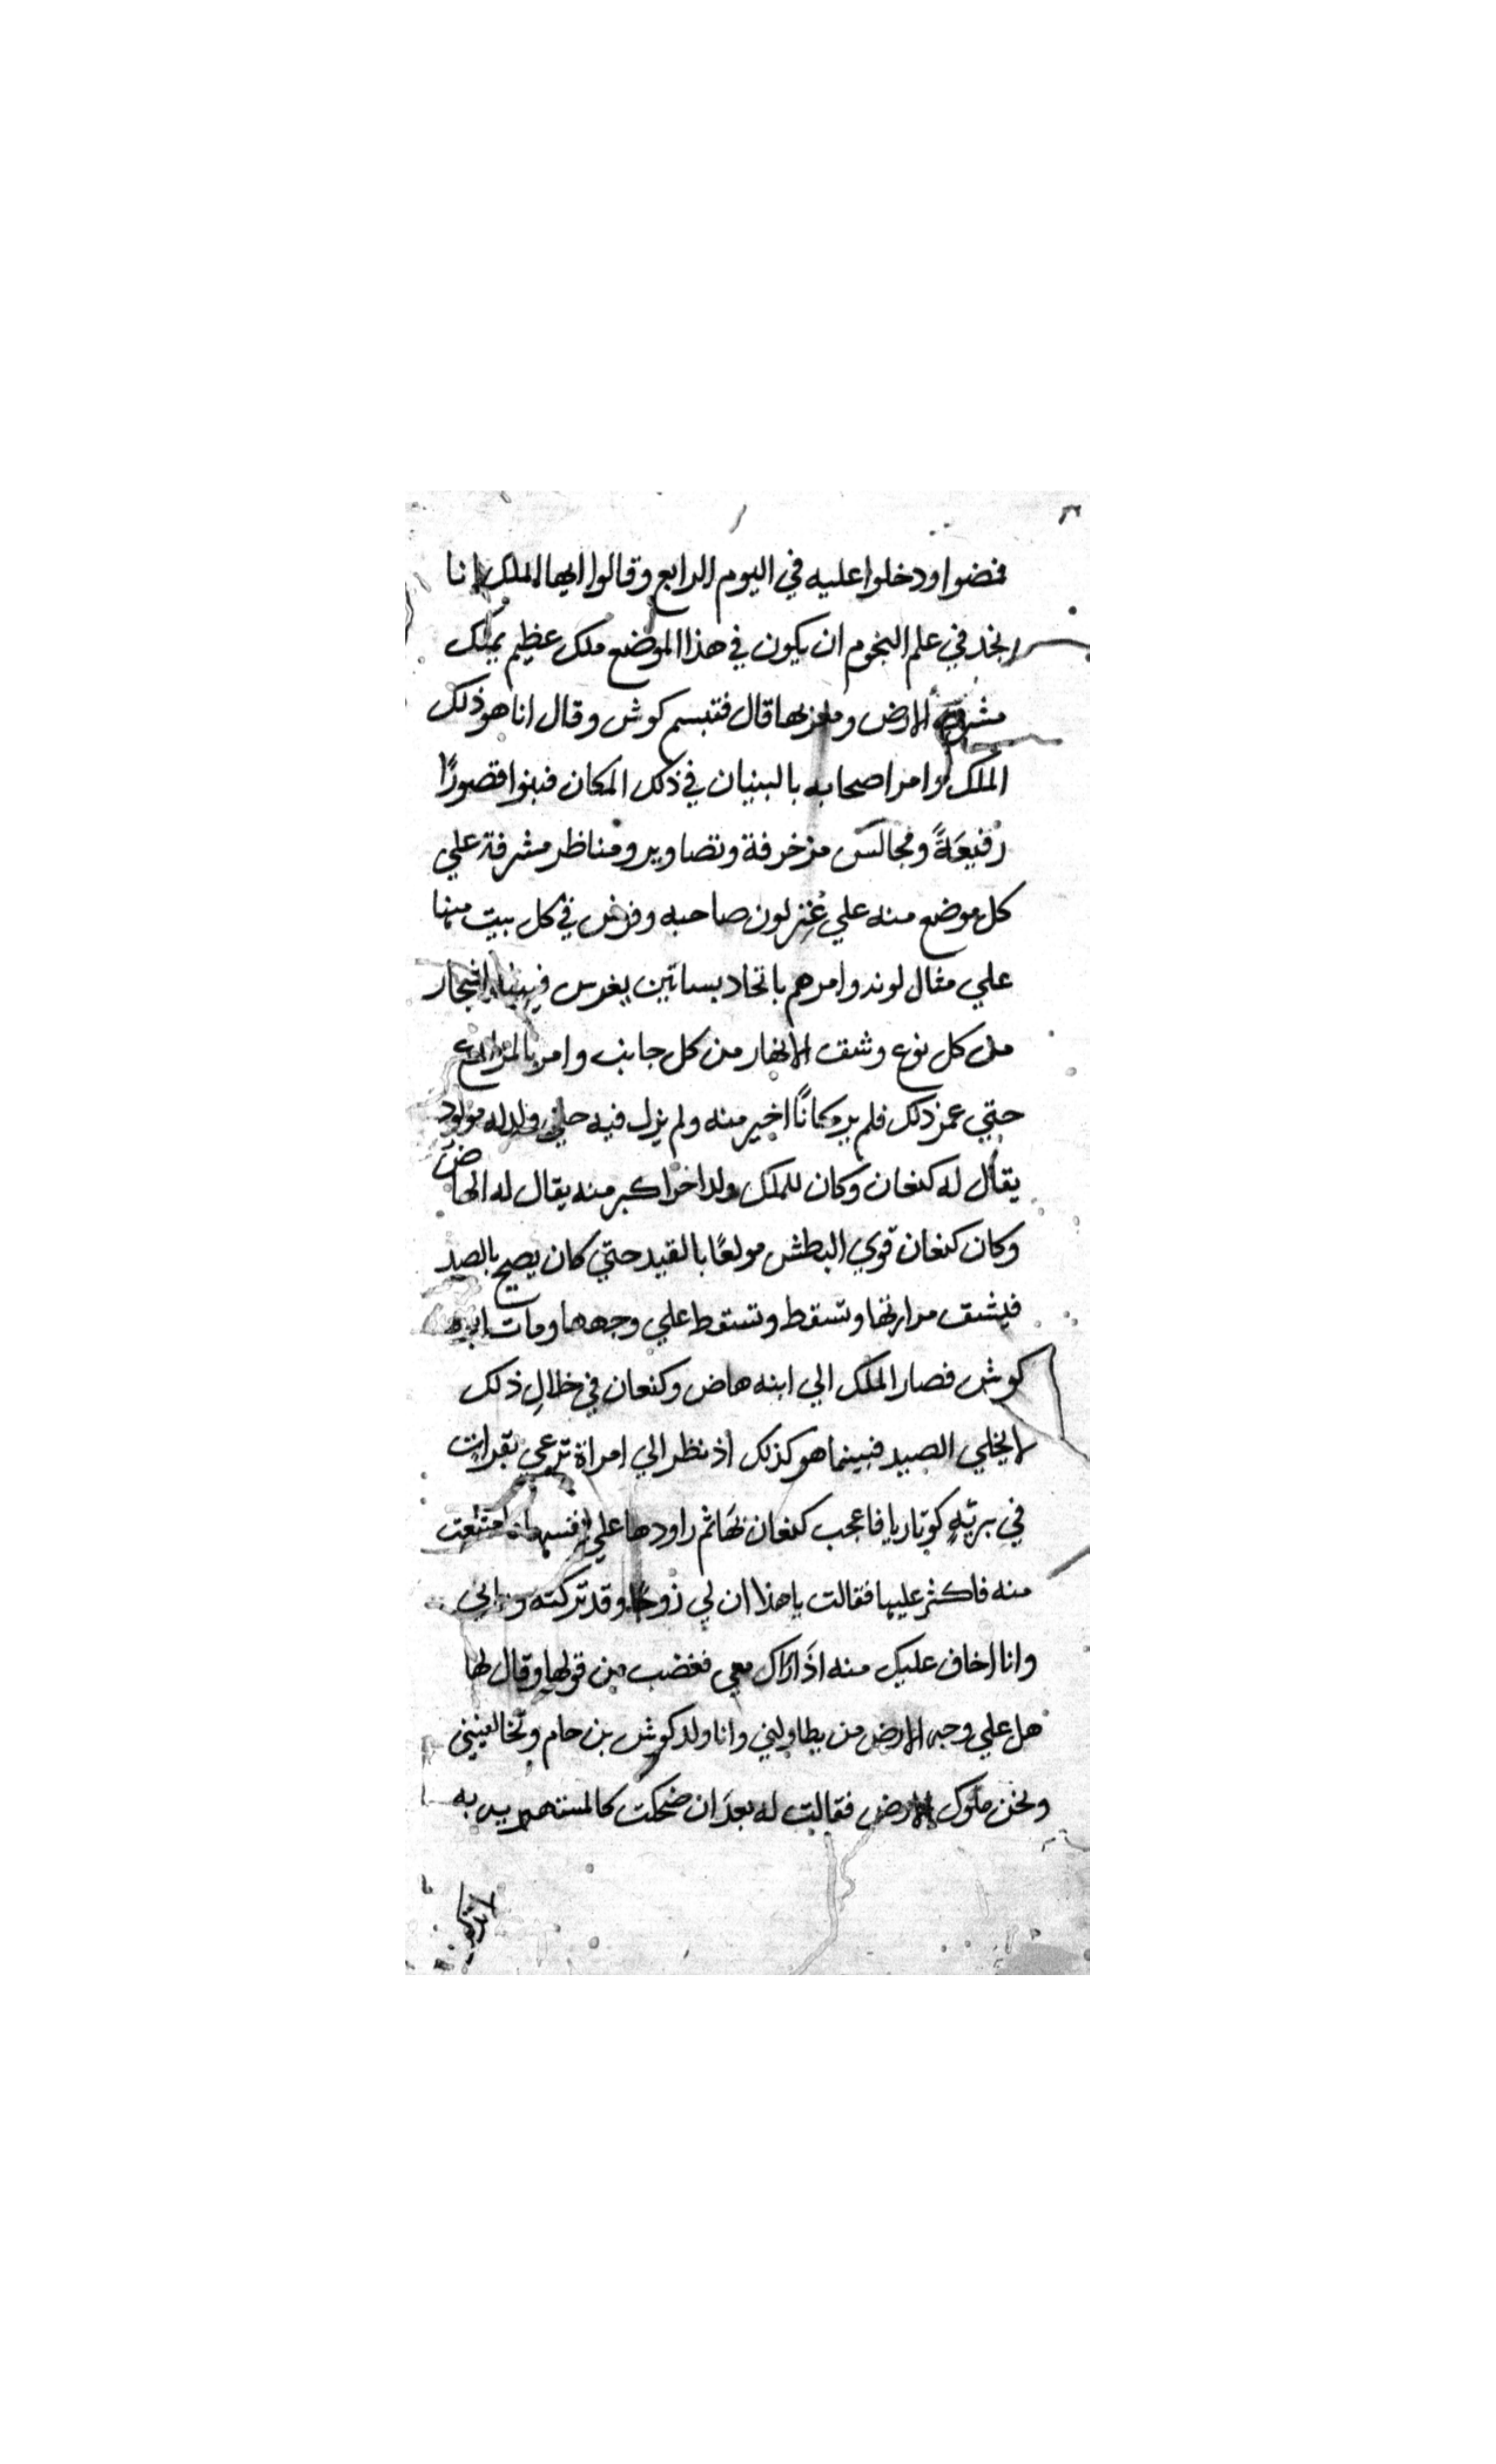 فمضوا ودخلوا عليه في اليوم الرابع وقالوا ايها الملك انا
نجد في علم النجوم ان يكون في هذا الموضع ملك عظيم يملك
مشرق الارض ومغربها قال فتبسم كوش وقال انا هو ذلك
الملك وامر اصحابه بالبنيان في ذلك المكان فبنوا قصورًا
رفيعَةً ومجالس مزخرفة وتصاوير ومناظر مشرفة علي
كل موضع منه علي غير لون صاحبه وفرش في كل بيت منها
علي مثال لونه وامرهم باتخاد بساتين يغرس فيها اشجار
من كل نوع وشق الانهار من كل جانب وامر بالمزارع
حتي عمر ذلك فلم ير مكانًا اخير منه ولم يزل فيه حتي ولد له مولود
يقال له كنعان وكان للملك ولد اخر اكبر منه يقال له الهاض
وكان كنعان قوي البطش مولعًا بالقيد حتي كان يصيح بالصيد
فيشق مرارتها وتسقط وتسقط علي وجهها ومات ابوه
كوش فصار الملك الي ابنه هاض وكنعان في خلالِ ذلك
لا يخلي الصيد فبينما هو كذلك اذ نظر الي امراة ترعي بقرات
في بريّهِ كوتاريا فاعجب كنعان بهَا ثم راودها علي نفسها فامتنعت
منه فاكثر عليها فقالت يا هذا ان لي زوجًا وقد تركته وراي
وانا اخاف عليك منه اذَا رَاك معي فغضب من قولها وقال لها
هل علي وجه الارض من يطاولني وانا ولد كوش بن حام وتخالفيني
ونحن ملوك الارض فقالت له بعدَ ان ضحكت كالمستهزيه به